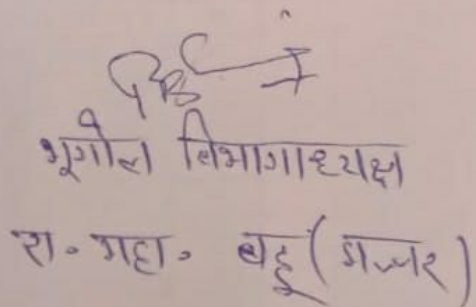 भूगोल विभागाध्यक्ष
रा. महा. बहू (झज्जर)